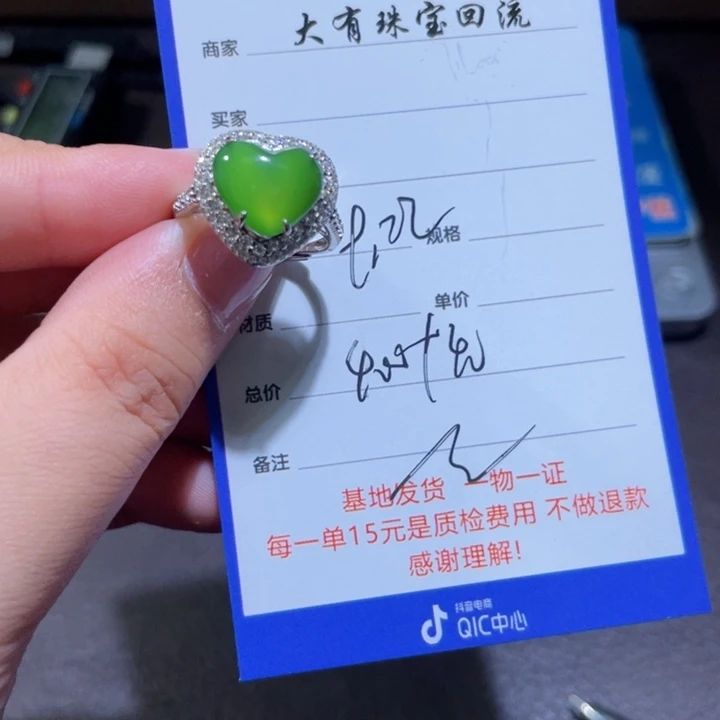 商家 大有珠宝回流
买家
规格
材质 单价
总价
备注
基地发货 一物一证
每一单15元是质检费用 不做退款
感谢理解!
抖音电商
QIC中心